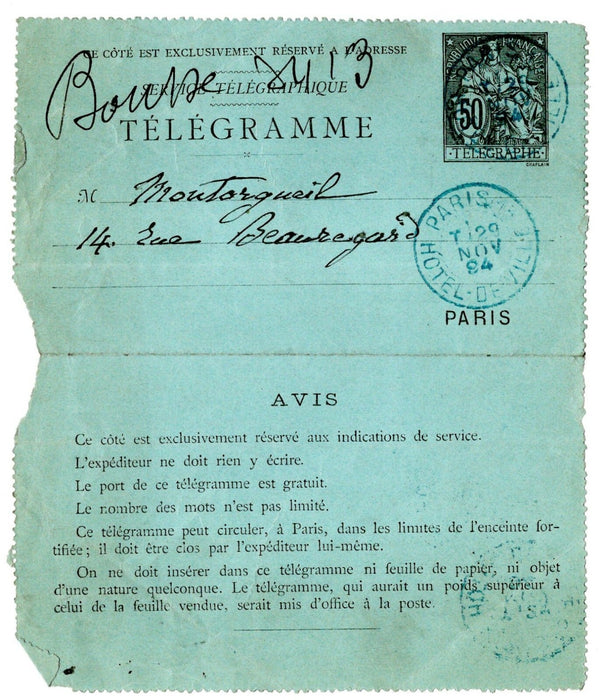 CE CÔTÉ EST EXCLUSIVEMENT RÉSERVÉ A L'ADRESSE
Bourse
SERVICE TÉLÉGRAPHIQUE
TÉLÉGRAMME
RÉPUBLIQUE FRANÇAISE
50
TÉLÉGRAPHE
CHAPLAIN
M Montorgueil
14. Rue Beauregard
PARIS
T 29
NOV
94
HOTEL-DE-VILLE
PARIS
AVIS
Ce côté est exclusivement réservé aux indications de service.
L'expéditeur ne doit rien y écrire.
Le port de ce télégramme est gratuit.
Le nombre des mots n'est pas limité.
Ce télégramme peut circuler, à Paris, dans les limites de l'enceinte for-
tifiée; il doit être clos par l'expéditeur lui-même.
On ne doit insérer dans ce télégramme ni feuille de papier, ni objet
d'une nature quelconque. Le télégramme, qui aurait un poids supérieur à
celui de la feuille vendue, serait mis d'office à la poste.